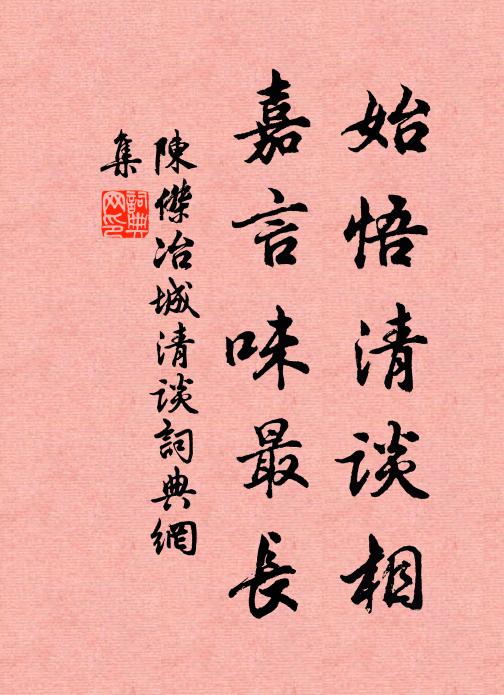 始悟清谈相
嘉言味最長
陳傑冶城清谈詞典網
集
詞典網印